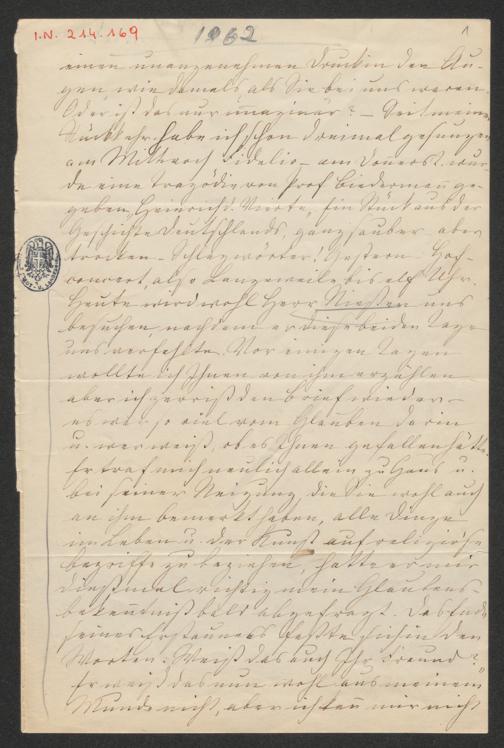 I.N. 214.169
1862
1
einen unangenehmen Druck in den Au-
gen, wie damals als Sie bei uns waren.
Oder ist das nur imaginär? – Seit meiner
Rückkehr habe ich schon dreimal gesungen
am Mittwoch Fidelio – am Donerst. wur-
de eine Tragödie von Prof Biedermann ge-
geben, Heinrich d. Vierte, Ein Stück aus der
Geschichte Deutschlands, ganz sauber aber
trocken – Schlagwörter! Gestern Hof-
concert, also Langeweile bis elf Uhr.
Heute wird wohl Herr uns
besuchen, nachdem er diese beiden Tage
uns verfehlte. Vor einigen Tagen
wollte ich Ihnen von ihm erzählen
aber ich zerriß den Brief wieder –
es war so viel vom Glauben darin
u. wer weiß, ob es Ihnen gefallen hätte.
Er traf mich neulich allein zu Haus u.
bei seiner Neigung, die Sie wohl auch
an ihm bemerkt haben, alle Dinge
im Leben u. der Kunst auf religiöse
Begriffe zu beziehen, hatte er mir
dießmal richtig mein Glaubens-
bekenntniß bald abgefragt. Das Ende
seines Erstaunens faßte sich in den
Worten: Weiß das auch Ihr Freund?
Er weiß das nun wohl aus meinem
Munde nicht, aber ich kann mir nicht